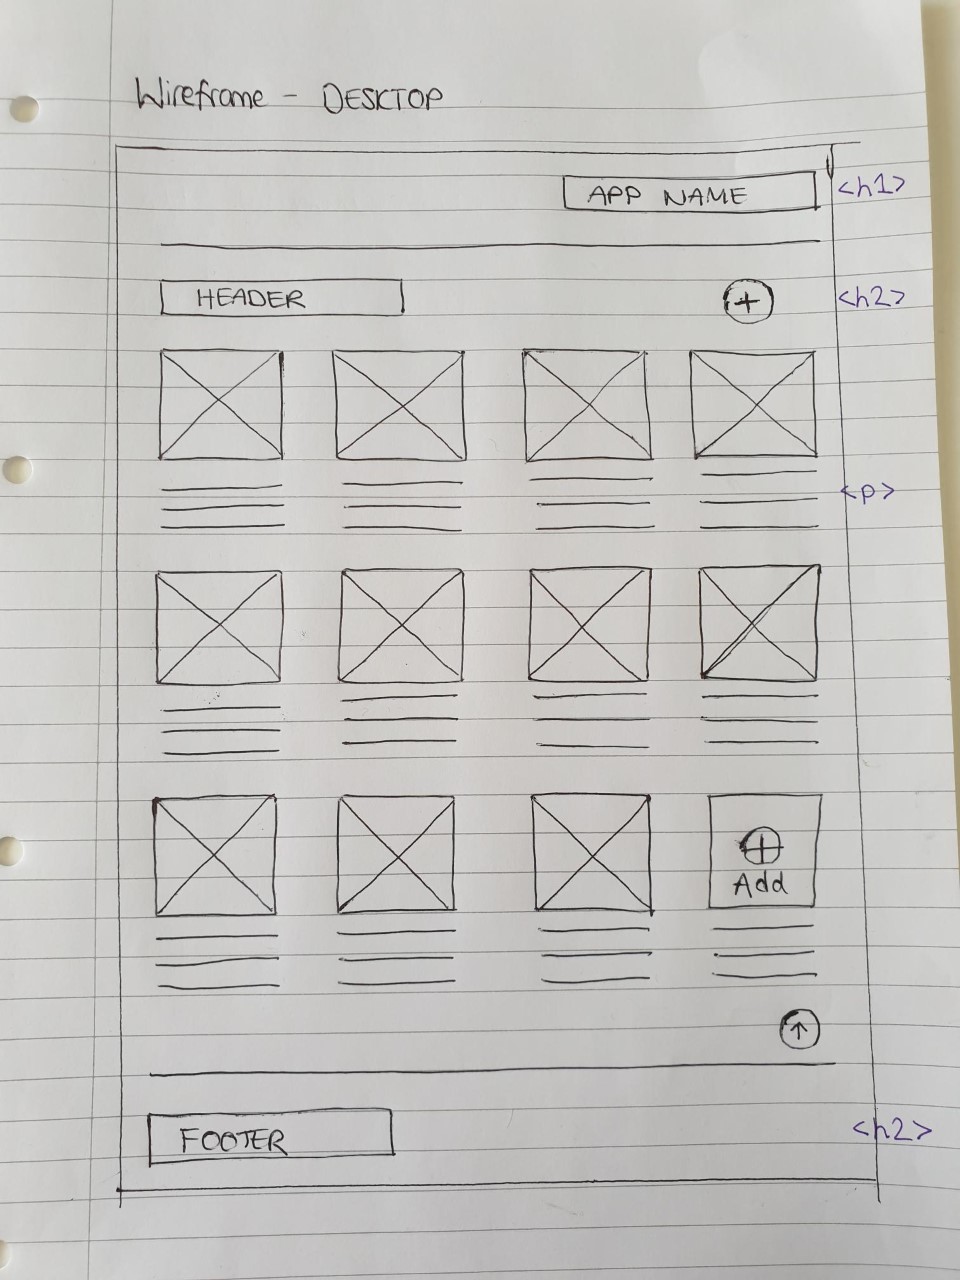 Wireframe - DESKTOP
APP NAME <h1>
HEADER + <h2>
<p>
+
Add
↑
FOOTER <h2>